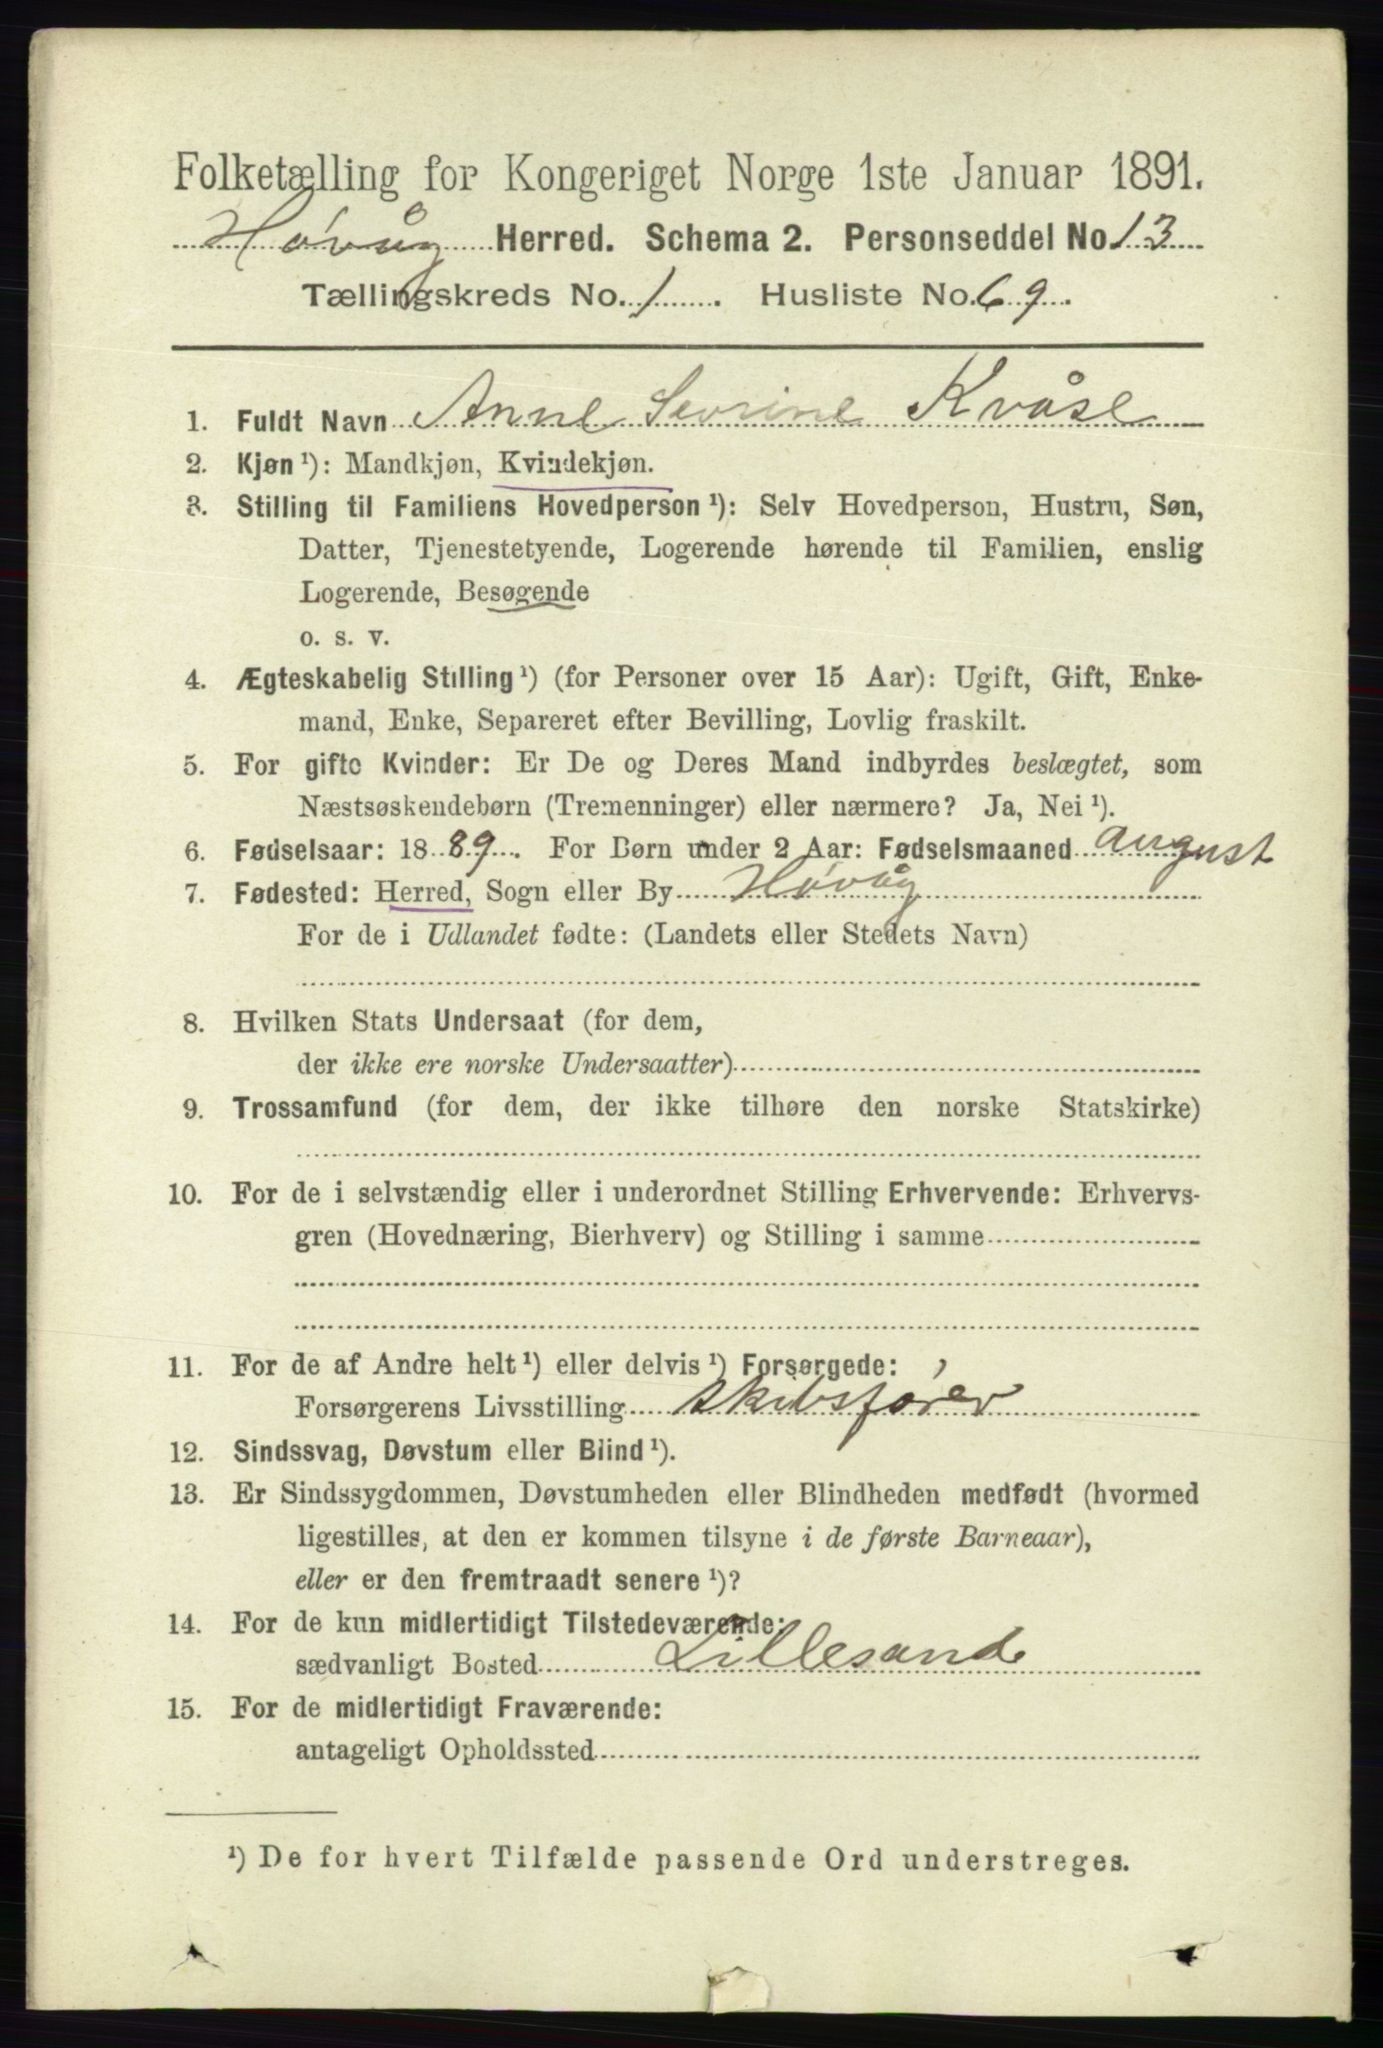 Folketælling for Kongeriget Norge 1ste Januar 1891.
Høvåg Herred. Schema 2. Personseddel No. 13
Tællingskreds No. 1. Husliste No. 69.
1. Fuldt Navn Anne Sevrine Kvåse
2. Kjøn ¹): Mandkjøn, Kvindekjøn.
3. Stilling til Familiens Hovedperson ¹): Selv Hovedperson, Hustru, Søn,
Datter, Tjenestetyende, Logerende hørende til Familien, enslig
Logerende, Besøgende
o. s. v.
4. Ægteskabelig Stilling ¹) (for Personer over 15 Aar): Ugift, Gift, Enke-
mand, Enke, Separeret efter Bevilling, Lovlig fraskilt.
5. For gifte Kvinder: Er De og Deres Mand indbyrdes beslægtet, som
Næstsøskendebørn (Tremenninger) eller nærmere? Ja, Nei ¹).
6. Fødselsaar: 1889. For Børn under 2 Aar: Fødselsmaaned August
7. Fødested: Herred, Sogn eller By Høvåg
For de i Udlandet fødte: (Landets eller Stedets Navn)
8. Hvilken Stats Undersaat (for dem,
der ikke ere norske Undersaatter)
9. Trossamfund (for dem, der ikke tilhøre den norske Statskirke)
10. For de i selvstændig eller i underordnet Stilling Erhvervende: Erhvervs-
gren (Hovednæring, Bierhverv) og Stilling i samme
11. For de af Andre helt ¹) eller delvis ¹) Forsørgede:
Forsørgerens Livsstilling Skibsfører
12. Sindssvag, Døvstum eller Blind ¹).
13. Er Sindssygdommen, Døvstumheden eller Blindheden medfødt (hvormed
ligestilles, at den er kommen tilsyne i de første Barneaar),
eller er den fremtraadt senere ¹)?
14. For de kun midlertidigt Tilstedeværende:
sædvanligt Bosted Lillesand
15. For de midlertidigt Fraværende:
antageligt Opholdssted
¹) De for hvert Tilfælde passende Ord understreges.